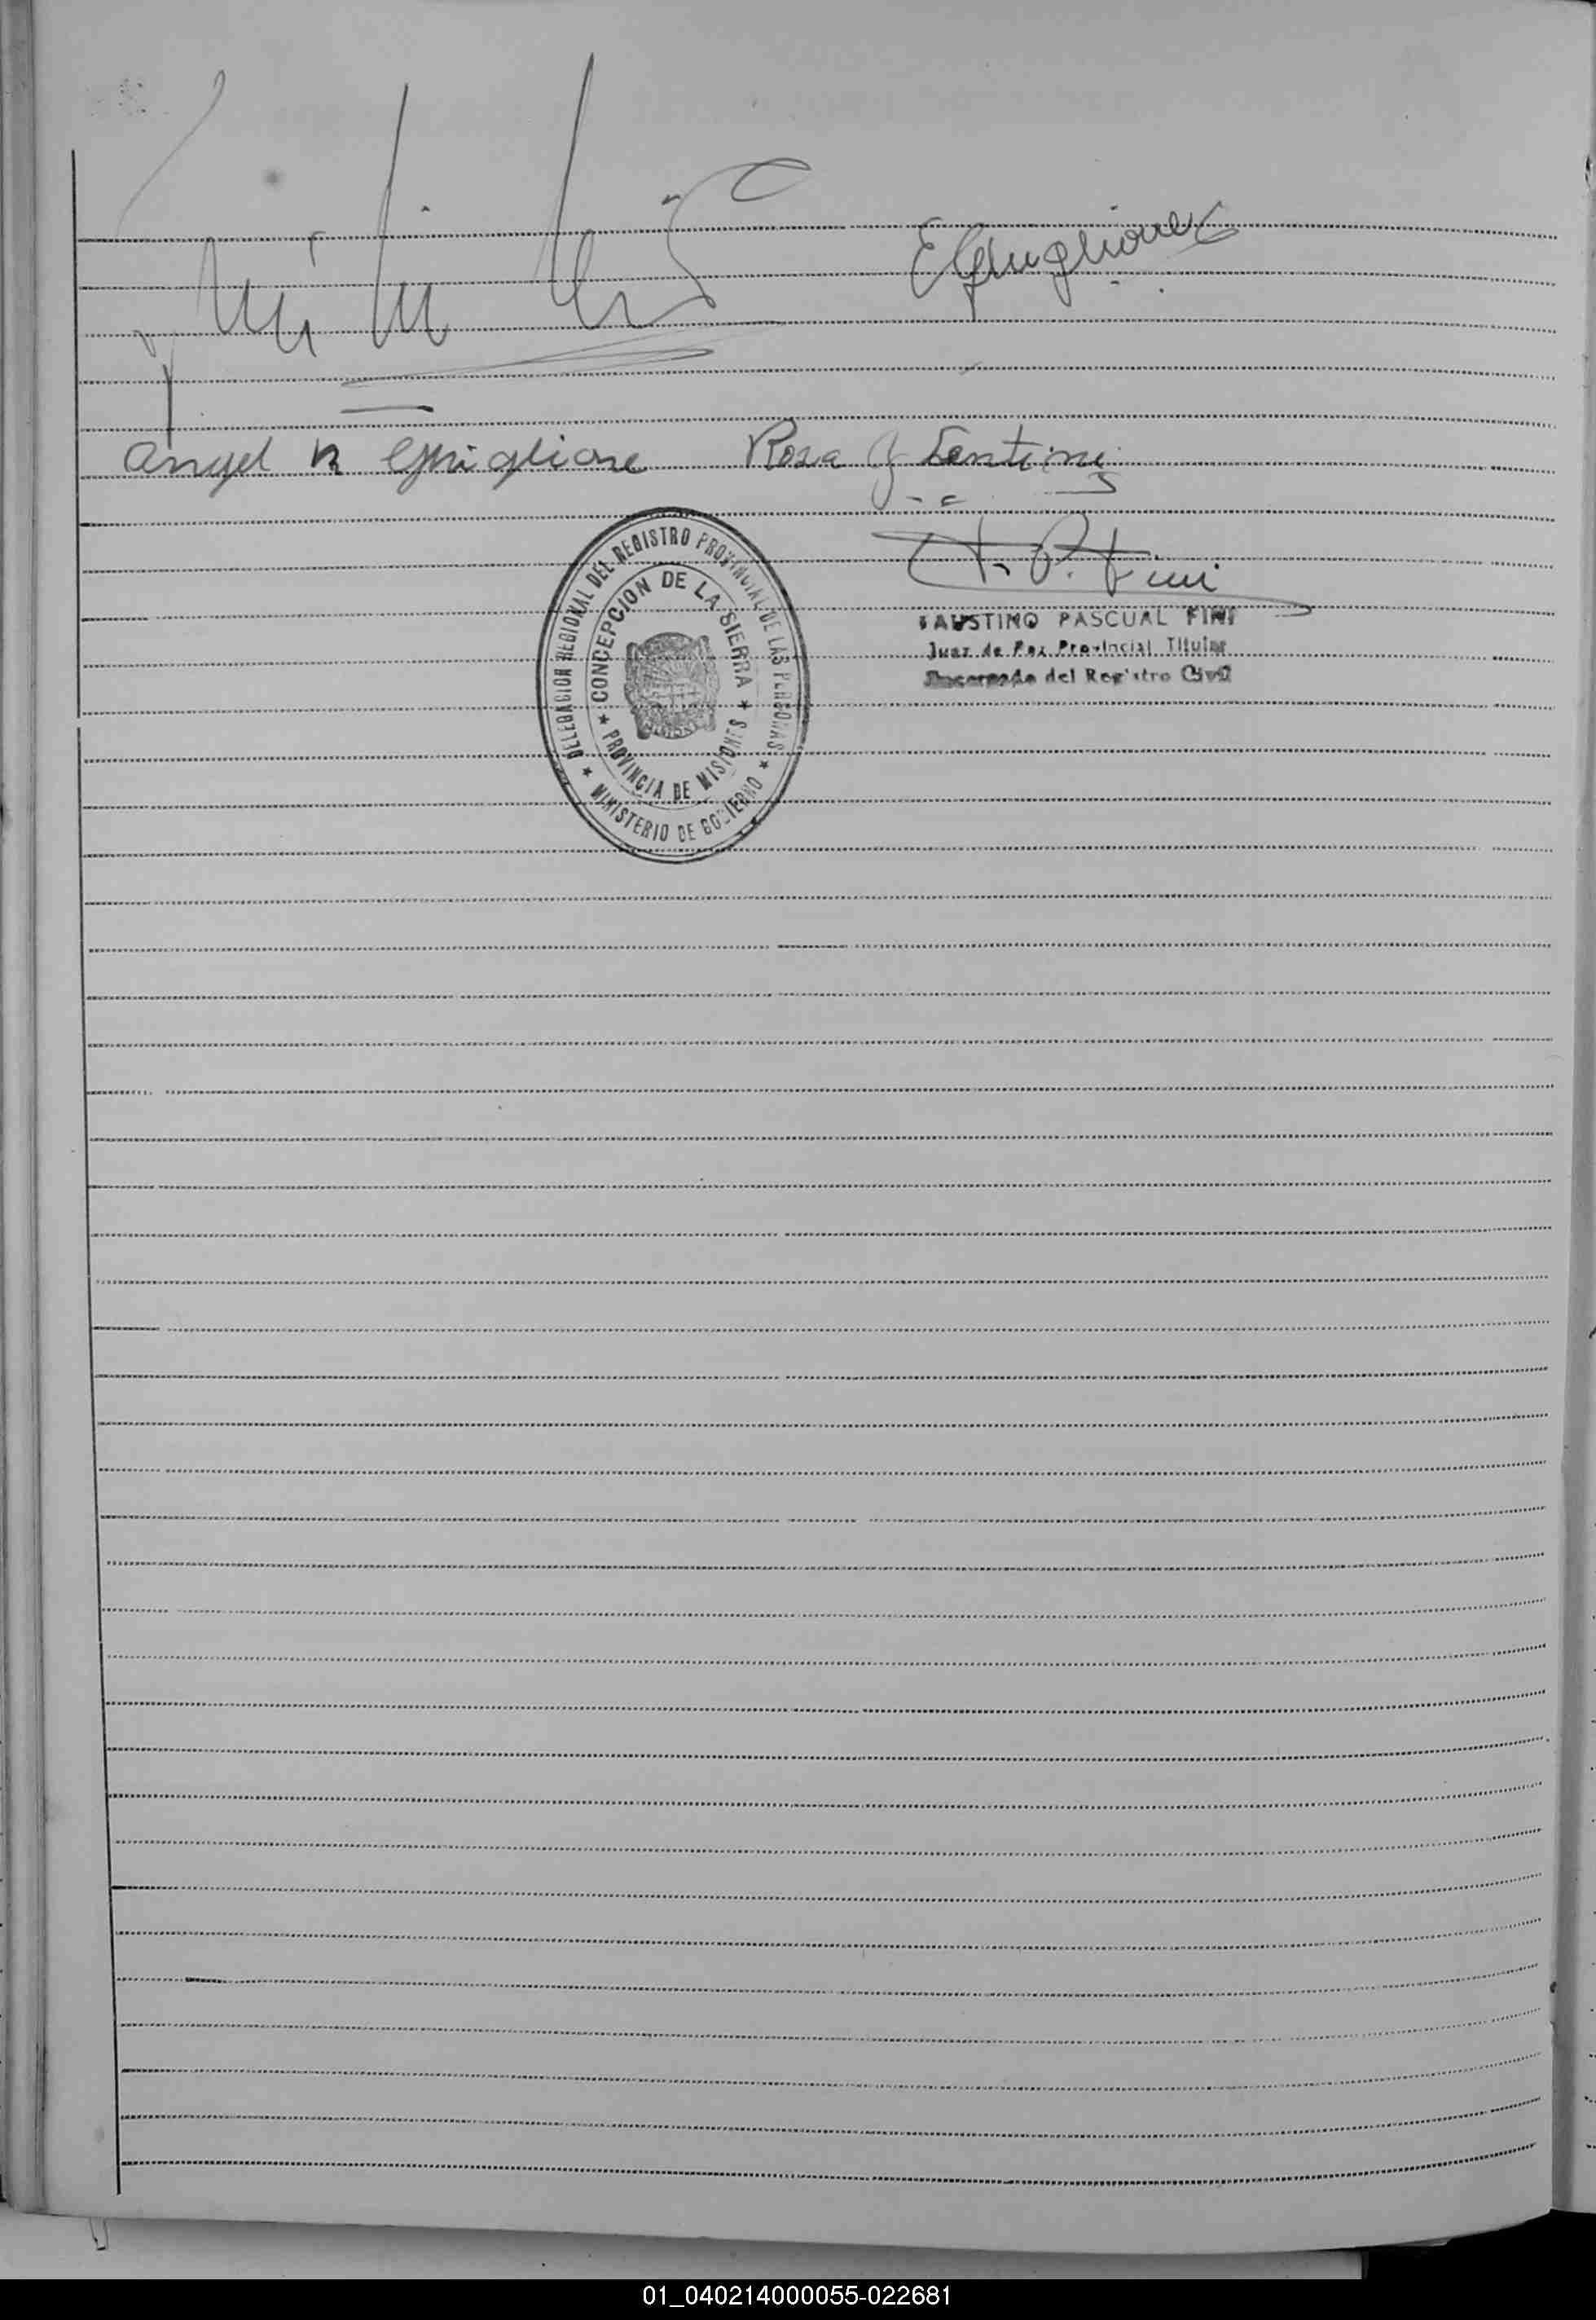 E Ghiglione
Angel R Ghiglione Rosa G Lentini
F. P. Fini
FAUSTINO PASCUAL FINI
Juez de Paz Provincial Titular
Encargado del Registro Civil
DELEGACION REGIONAL DEL REGISTRO PROVINCIAL DE LAS PERSONAS
★ MINISTERIO DE GOBIERNO ★
CONCEPCION DE LA SIERRA
★ PROVINCIA DE MISIONES ★
01_040214000055-022681